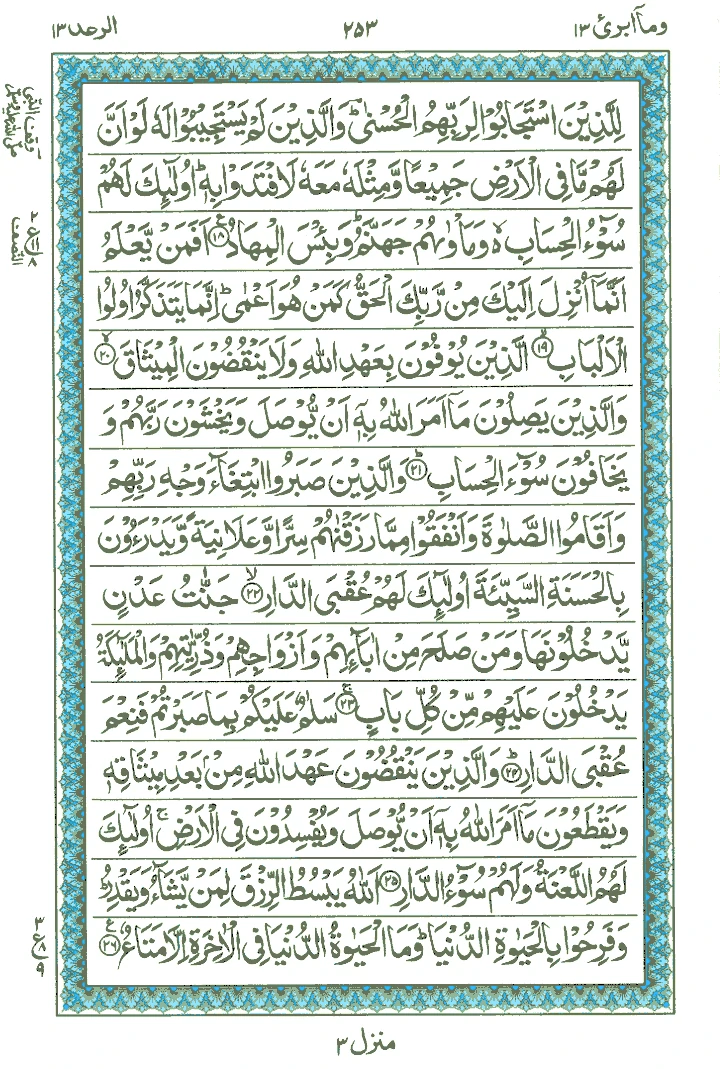 وما آبرئ ١٣
٢٥٣
الرعد ١٣
لِلَّذِيْنَ اسْتَجَابُوْا لِرَبِّهِمُ الْحُسْنٰىؕ وَالَّذِيْنَ لَمْ يَسْتَجِيْبُوْا لَهٗ لَوْ اَنَّ
لَهُمْ مَّا فِى الْاَرْضِ جَمِيْعًا وَّمِثْلَهٗ مَعَهٗ لَافْتَدَوْا بِهٖؕ اُولٰٓئِكَ لَهُمْ
سُوْٓءُ الْحِسَابِ ۙ وَمَاْوٰىهُمْ جَهَنَّمُؕ وَبِئْسَ الْمِهَادُ ﴿١٨﴾ اَفَمَنْ يَّعْلَمُ
اَنَّمَاۤ اُنْزِلَ اِلَيْكَ مِنْ رَّبِّكَ الْحَقُّ كَمَنْ هُوَ اَعْمٰىؕ اِنَّمَا يَتَذَكَّرُ اُولُوا
الْاَلْبَابِ ﴿١٩﴾ۙ الَّذِيْنَ يُوْفُوْنَ بِعَهْدِ اللّٰهِ وَلَا يَنْقُضُوْنَ الْمِيْثَاقَ ﴿٢٠﴾ۙ
وَالَّذِيْنَ يَصِلُوْنَ مَاۤ اَمَرَ اللّٰهُ بِهٖۤ اَنْ يُّوْصَلَ وَيَخْشَوْنَ رَبَّهُمْ وَ
يَخَافُوْنَ سُوْٓءَ الْحِسَابِ ﴿٢١﴾ؕ وَالَّذِيْنَ صَبَرُوا ابْتِغَآءَ وَجْهِ رَبِّهِمْ
وَاَقَامُوا الصَّلٰوةَ وَاَنْفَقُوْا مِمَّا رَزَقْنٰهُمْ سِرًّا وَّعَلَانِيَةً وَّيَدْرَءُوْنَ
بِالْحَسَنَةِ السَّيِّئَةَ اُولٰٓئِكَ لَهُمْ عُقْبَى الدَّارِ ﴿٢٢﴾ۙ جَنّٰتُ عَدْنٍ
يَّدْخُلُوْنَهَا وَمَنْ صَلَحَ مِنْ اٰبَآئِهِمْ وَاَزْوَاجِهِمْ وَذُرِّيّٰتِهِمْ وَالْمَلٰٓئِكَةُ
يَدْخُلُوْنَ عَلَيْهِمْ مِّنْ كُلِّ بَابٍ ﴿٢٣﴾ۚ سَلٰمٌ عَلَيْكُمْ بِمَا صَبَرْتُمْ فَنِعْمَ
عُقْبَى الدَّارِ ﴿٢٤﴾ؕ وَالَّذِيْنَ يَنْقُضُوْنَ عَهْدَ اللّٰهِ مِنْۢ بَعْدِ مِيْثَاقِهٖ
وَيَقْطَعُوْنَ مَاۤ اَمَرَ اللّٰهُ بِهٖۤ اَنْ يُّوْصَلَ وَيُفْسِدُوْنَ فِى الْاَرْضِۙ اُولٰٓئِكَ
لَهُمُ اللَّعْنَةُ وَلَهُمْ سُوْٓءُ الدَّارِ ﴿٢٥﴾ اَللّٰهُ يَبْسُطُ الرِّزْقَ لِمَنْ يَّشَآءُ وَيَقْدِرُؕ
وَفَرِحُوْا بِالْحَيٰوةِ الدُّنْيَاؕ وَمَا الْحَيٰوةُ الدُّنْيَا فِى الْاٰخِرَةِ اِلَّا مَتَاعٌ ﴿٢٦﴾
وقف النبى
صلى الله عليه وسلم
٢ ع ٨
النصف
٣ ع ٨ ٩
منزل ٣